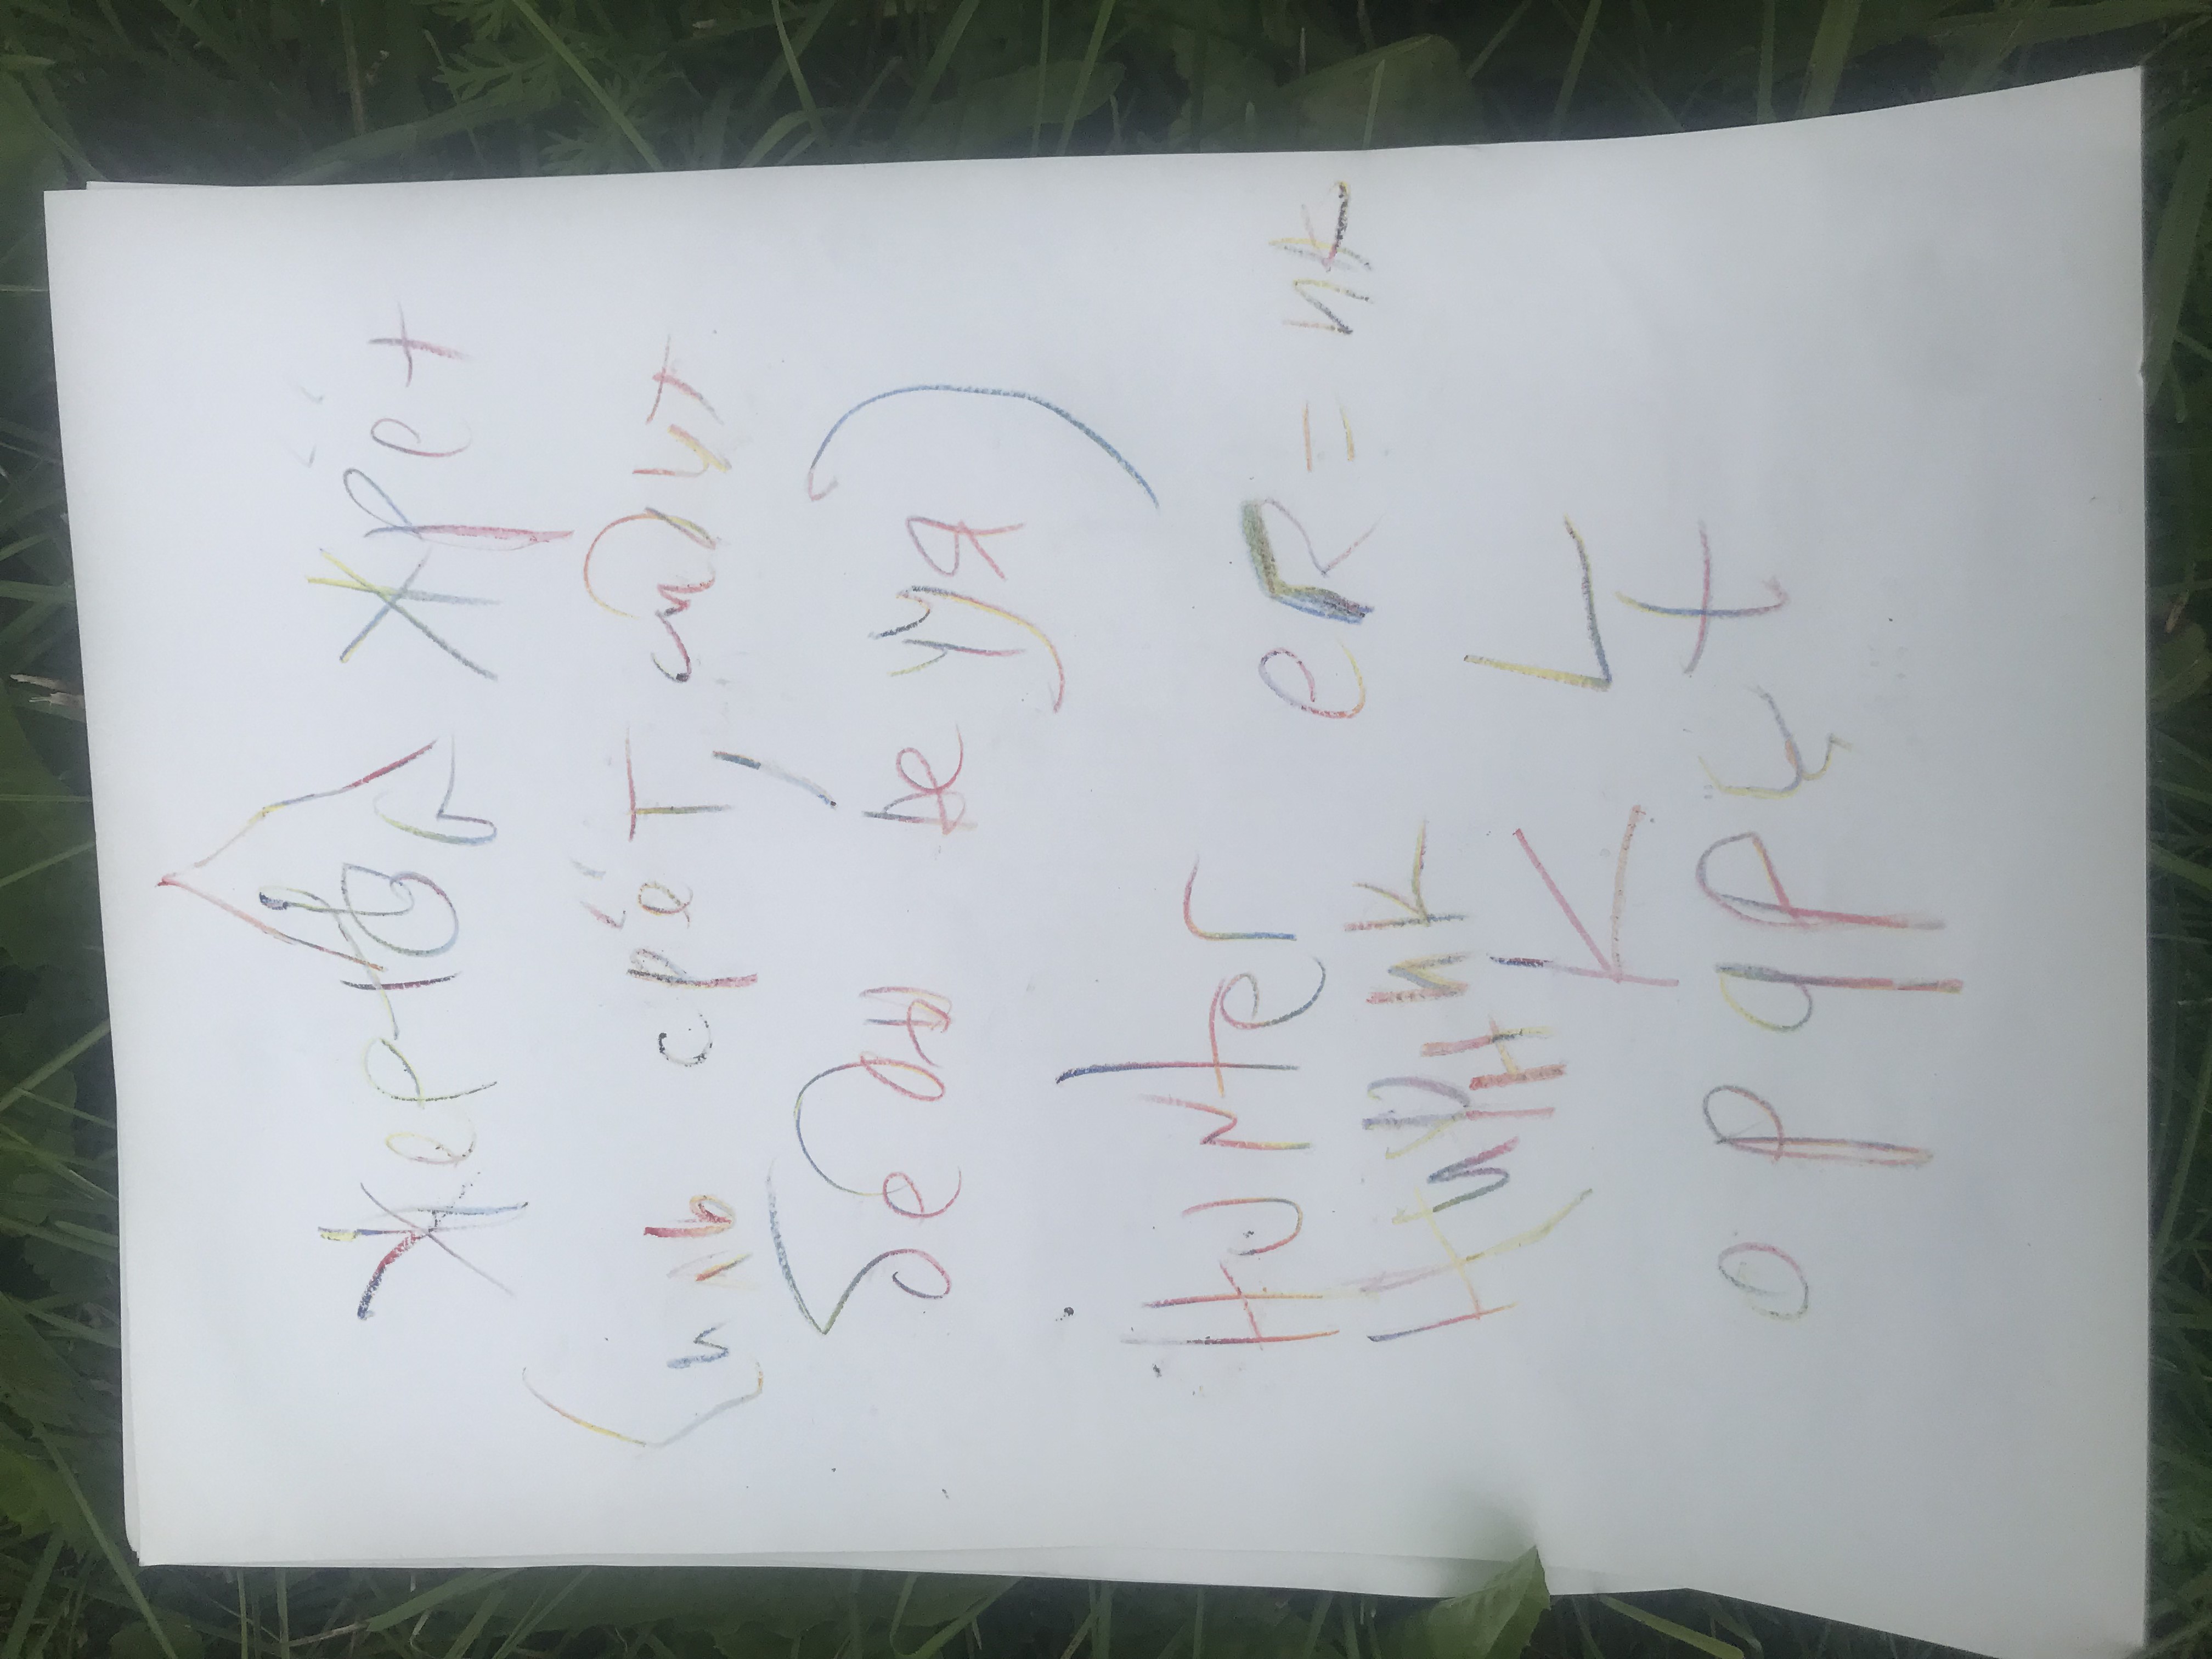 жертва жрёт
(иль срёт, сидит
беды не чуя)
Hunter
eR = ик
K L
о р q р ё t